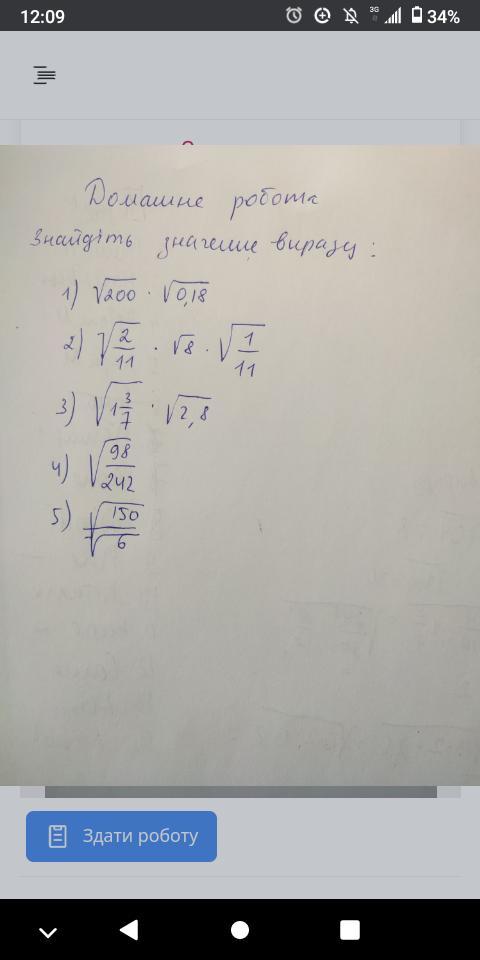 12:09
3G
34%
Домашнє робота
Знайдіть значення виразу :
1) √200 · √0,18
2) √2/11 · √8 · √1/11
3) √1 3/7 · √2,8
4) √98/242
5) √150/√6
Здати роботу